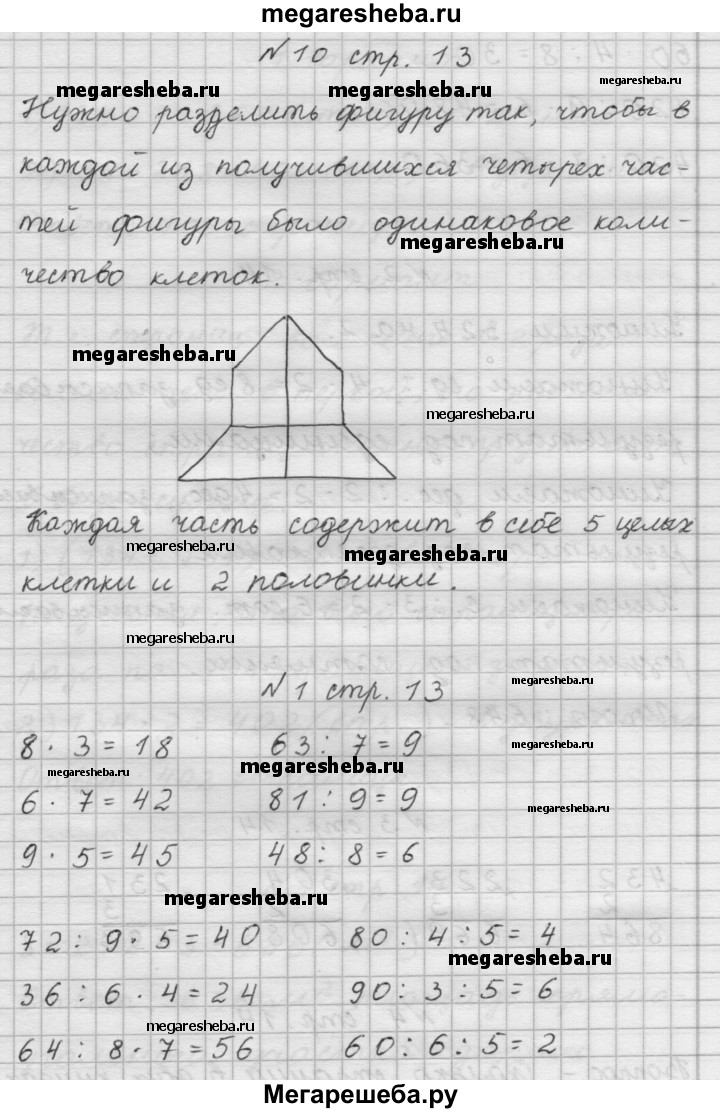 megaresheba.ru
N 10 стр. 13
megaresheba.ru megaresheba.ru megaresheba.ru
Нужно разделить фигуру так, чтобы в
каждой из получившихся четырех час-
тей фигуры было одинаковое коли-
megaresheba.ru
чество клеток.
megaresheba.ru
megaresheba.ru
Каждая часть содержит в себе 5 целых
megaresheba.ru megaresheba.ru
клетки и 2 половинки.
megaresheba.ru
N 1 стр. 13 megaresheba.ru
8 · 3 = 18 63 : 7 = 9 megaresheba.ru
megaresheba.ru megaresheba.ru
6 · 7 = 42 81 : 9 = 9 megaresheba.ru
9 · 5 = 45 48 : 8 = 6
megaresheba.ru
72 : 9 · 5 = 40 80 : 4 : 5 = 4
megaresheba.ru
36 : 6 · 4 = 24 90 : 3 : 5 = 6
megaresheba.ru
64 : 8 · 7 = 56 60 : 6 : 5 = 2
Мегарешеба.ру